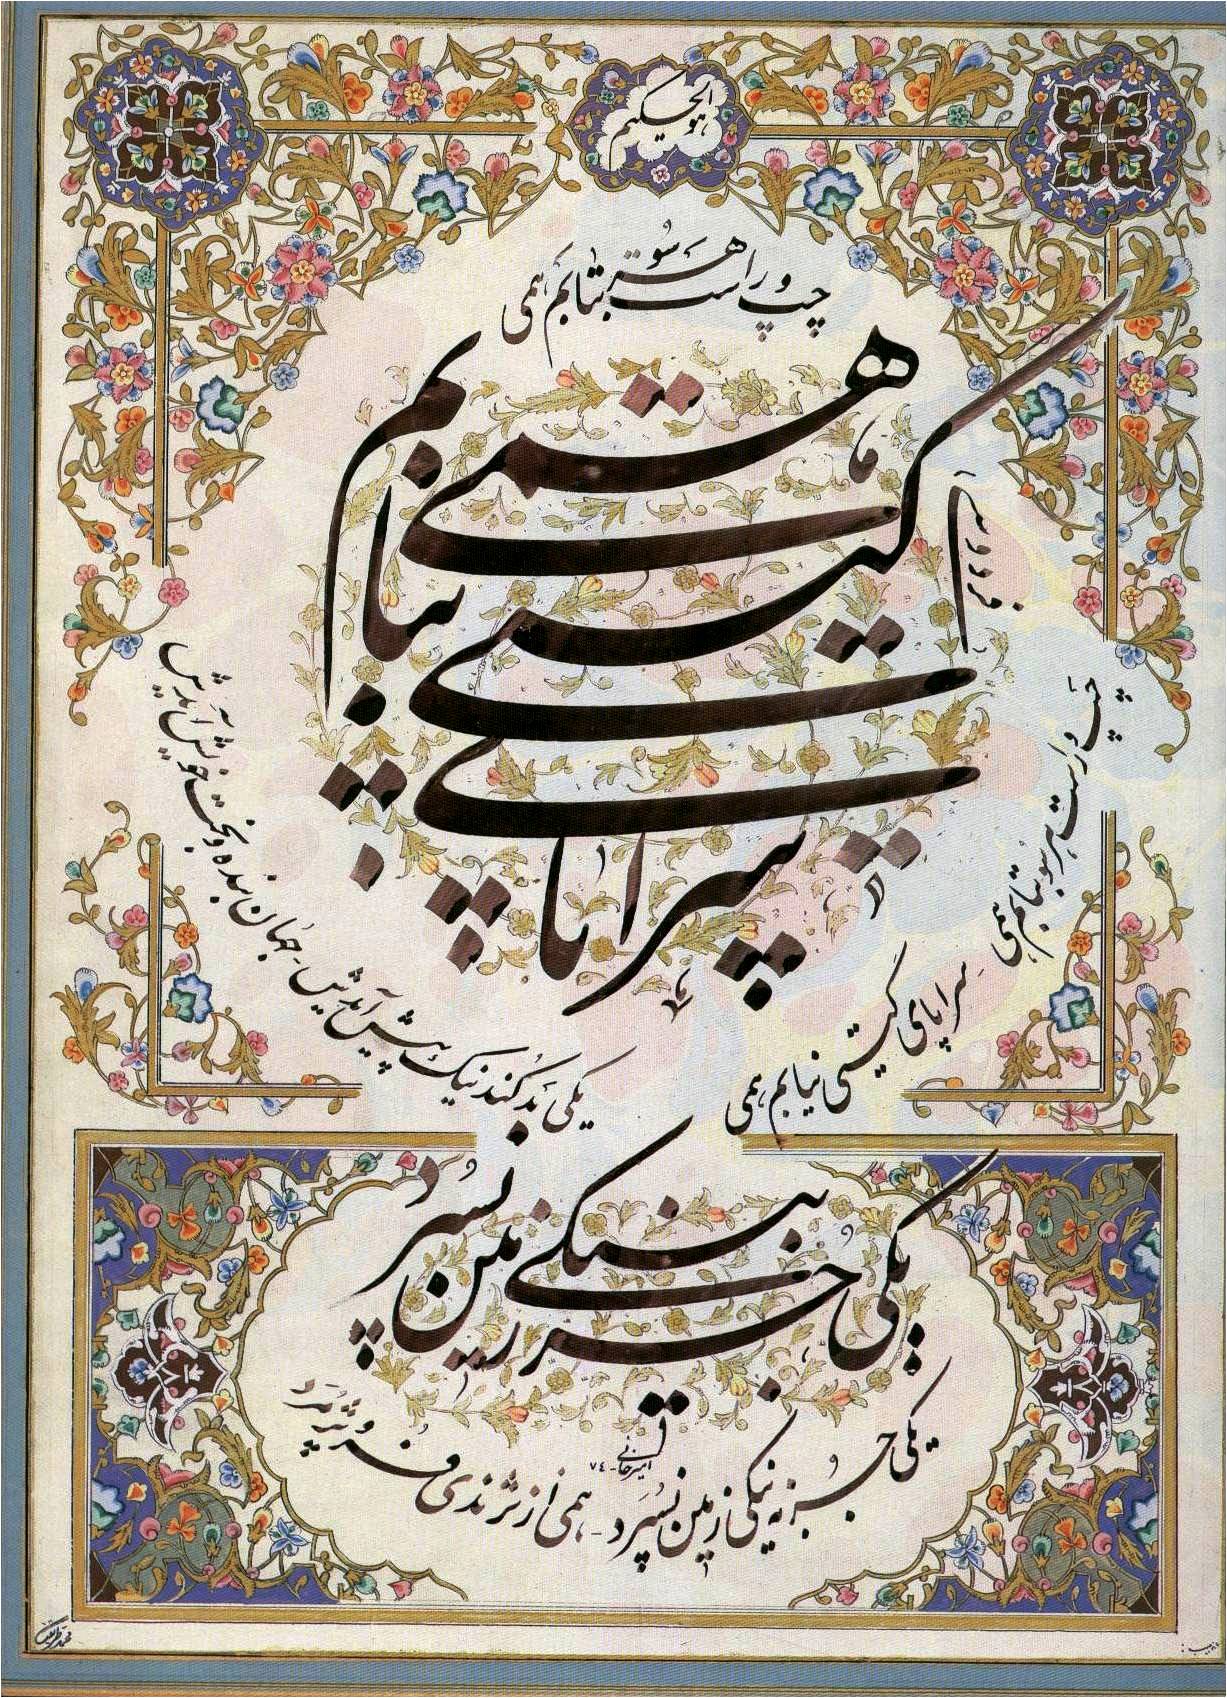 هوالحکیم
چپ و راست هر سو بتابم همی
سراپای گیتی نیابم همی
فردوسی
چپ و راست هر سو بتابم همی
سراپای گیتی نیابم همی
یکی بد کند نیک پیش آیدش - جهان بنده و بخت خویش آیدش
یکی جز به نیکی زمین نسپرد
یکی جز به نیکی زمین نسپرد - همی از نژندی فرو پژمرد
امیرخانی - ۷۴